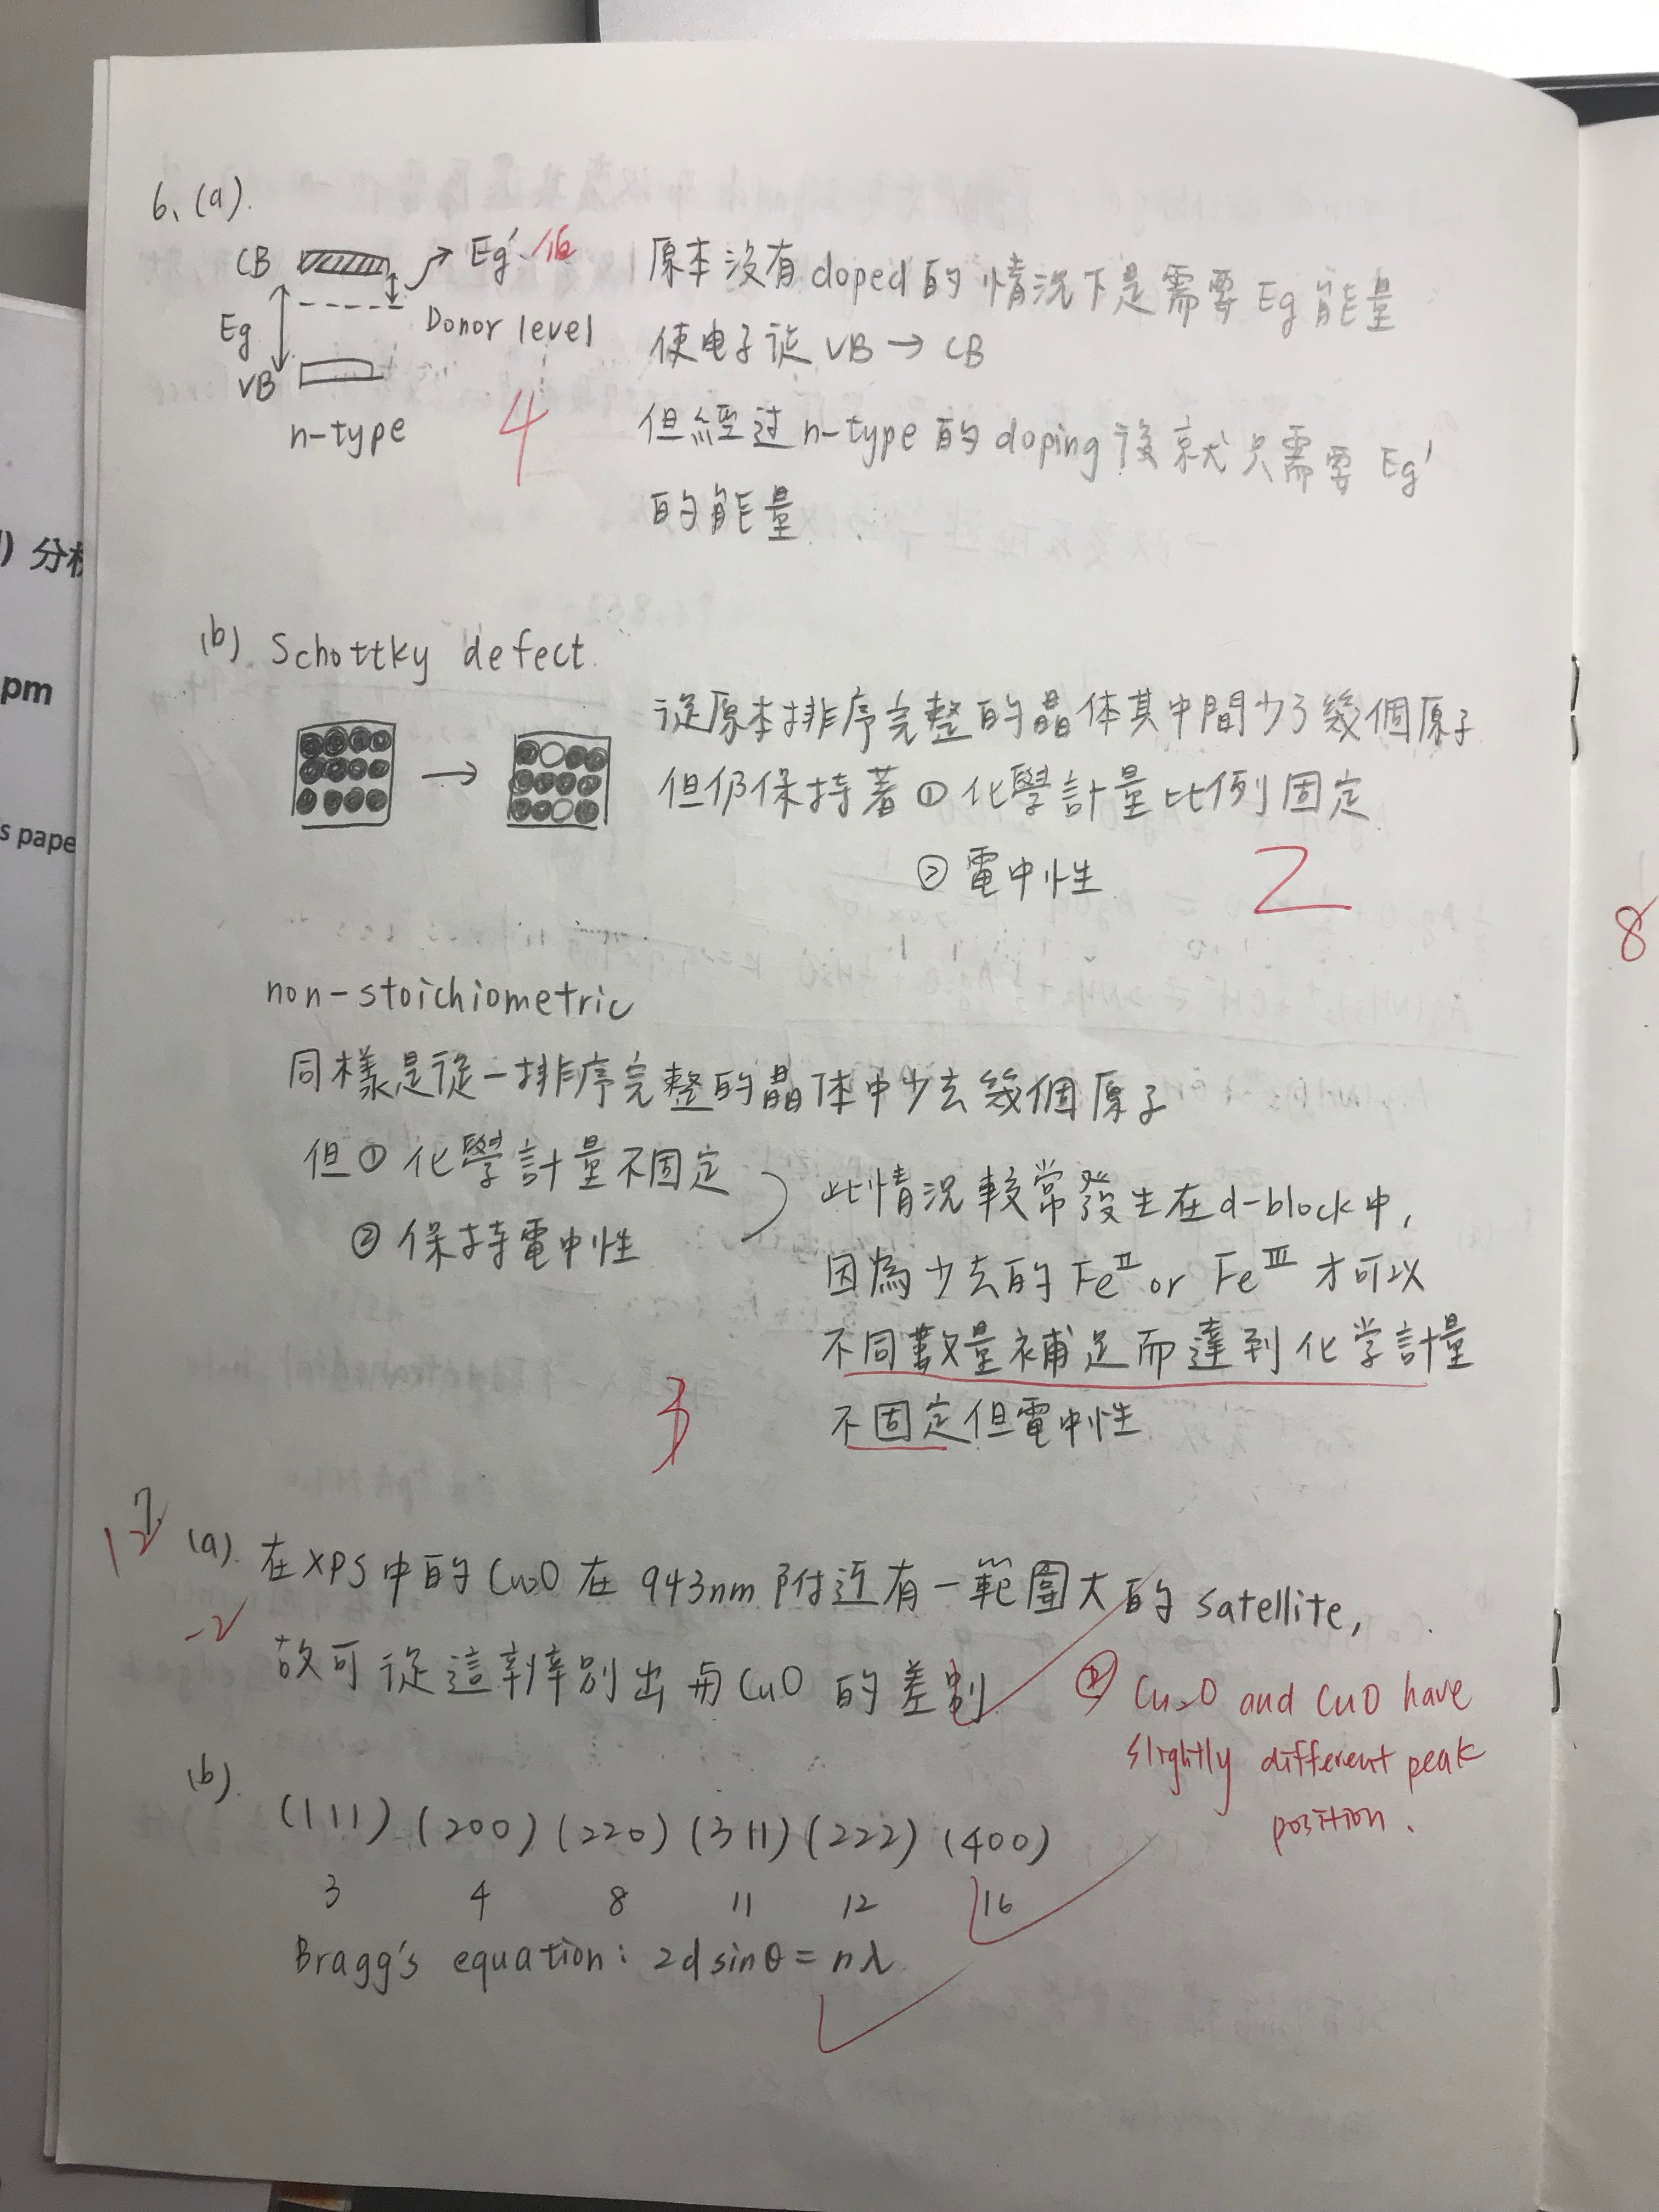 6、(a).
CB
Eg'
Eg
Donor level
VB
n-type
4
原本沒有doped的情況下是需要Eg能量
使电子從VB→CB
但經过n-type的doping後就只需要Eg'
的能量
(b) Schottky defect.
從原本排序完整的晶体其中間少了幾個原子
但仍保持著①化學計量比例固定
②電中性
2
non-stoichiometric
同樣是從一排序完整的晶体中少去幾個原子
但①化學計量不固定
②保持電中性
此情況較常發生在d-block中,
因為少去的Fe^Ⅱ or Fe^Ⅲ才可以
不同數量補足而達到化学計量
不固定但電中性
3
(a). 在XPS中的Cu2O在943nm附近有一範圍大的satellite,
-2
故可從這辨別出与CuO的差別
② Cu2O and CuO have
slightly different peak
position.
(b).
(111) (200) (220) (311) (222) (400)
3 4 8 11 12 16
Bragg's equation: 2d sinθ = nλ
) 分析
pm
s pape
8